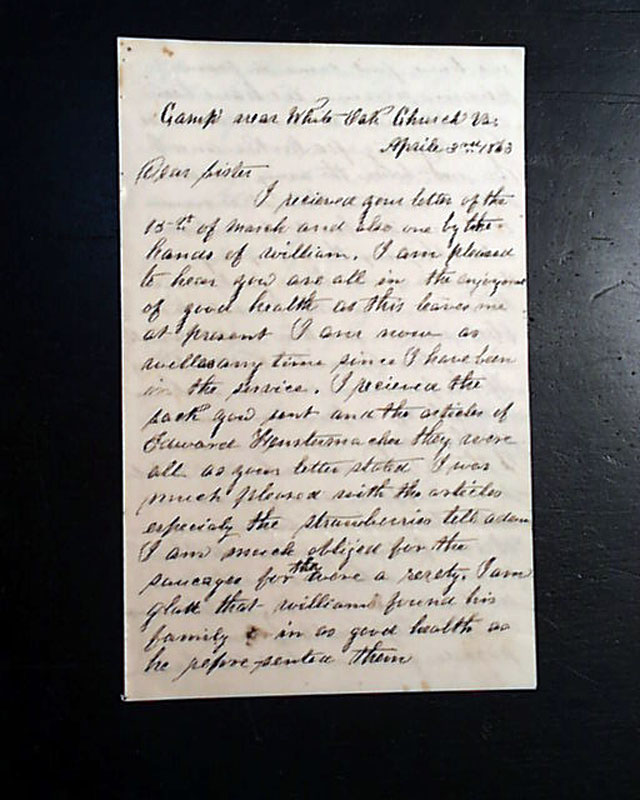 Camp near White Oak Church Va.
Aprile 3rd 1863
Dear sister
I recieved your letter of the
15th of march and also one by the
hands of william. I am pleased
to hear you are all in the enjoyme
of good health as this leaves me
at present I am now as
well as any time since I have been
in the service. I recieved the
sack you sent and the articles of
Edward Fenstermacher they were
all as your letter stated I was
much pleased with the articles
especialy the strawberries tell adam
I am much obliged for the
saucages for the were a rerety. I am
glad that william found his
family in as good health as
he repre-sented them